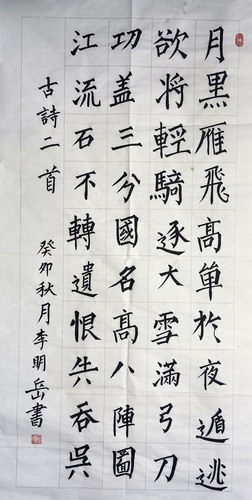 月黑雁飛高单於夜遁逃
欲將輕騎逐大雪滿弓刀
功盖三分國名高八陣圖
江流石不轉遺恨失吞吳
古詩二首 癸卯秋月李明岳書